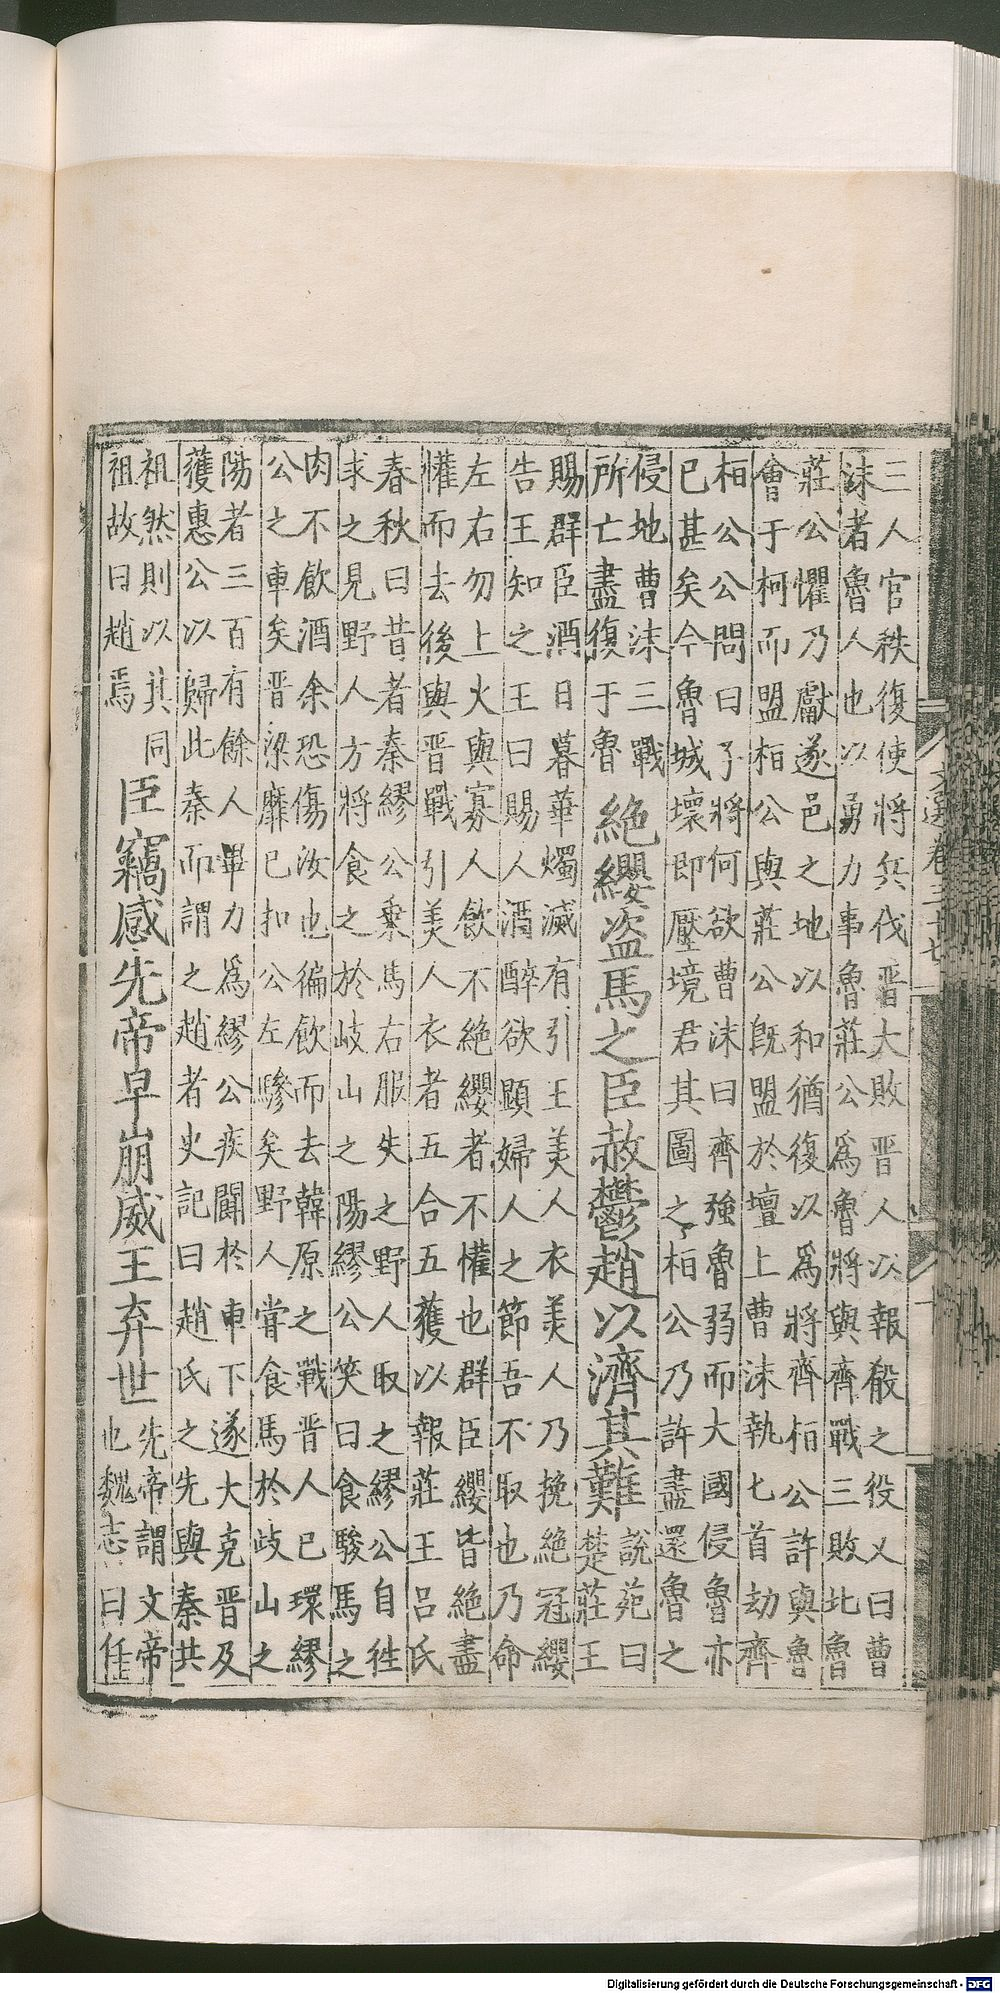 文選卷三十七
三人官秩復使將兵伐晉大敗晉人以報殽之役又曰曹
沫者魯人也以勇力事魯莊公爲魯將與齊戰三敗北魯
莊公懼乃獻遂邑之地以和猶復以爲將齊桓公許與魯
會于柯而盟桓公與莊公旣盟於壇上曹沫執匕首劫齊
桓公公問曰子將何欲曹沫曰齊強魯弱而大國侵魯亦
已甚矣今魯城壞即壓境君其圖之桓公乃許盡還魯之
侵地曹沫三戰
所亡盡復于魯
絶纓盜馬之臣赦鬱趙以濟其難
說苑曰
楚莊王
賜群臣酒日暮華燭滅有引王美人衣美人乃挽絶冠纓
告王知之王曰賜人酒醉欲顯婦人之節吾不取也乃命
左右勿上火與寡人飲不絶纓者不懽也群臣纓皆絶盡
懽而去後與晉戰引美人衣者五合五獲以報莊王呂氏
春秋曰昔者秦繆公乗馬右服失之野人取之繆公自徃
求之見野人方將食之於岐山之陽繆公笑曰食駿馬之
肉不飲酒余恐傷汝也徧飲而去韓原之戰晉人已環繆
公之車矣晉梁靡已扣公左驂矣野人甞食馬於歧山之
陽者三百有餘人畢力爲繆公疾鬭於車下遂大克晉及
獲惠公以歸此秦而謂之趙者史記曰趙氏之先與秦共
祖然則以其同
祖故曰趙焉
臣竊感先帝早崩威王弃世
先帝謂文帝
也魏志曰任
Digitalisierung gefördert durch die Deutsche Forschungsgemeinschaft - DFG